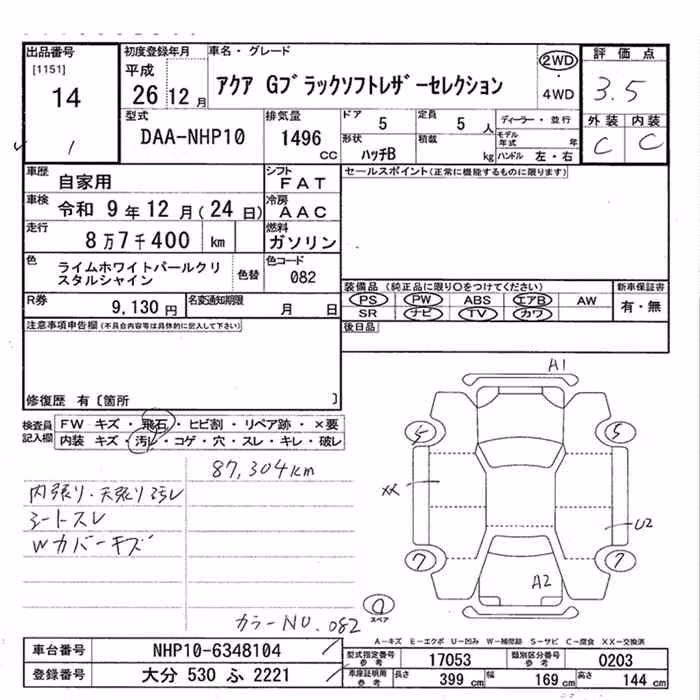 出品番号
[1151]
14
1
初度登録年月
平成
26 12 月
車名・グレード
アクア Gブラックソフトレザーセレクション
2WD
・
4WD
評価点
3.5
外装 内装
C C
型式
DAA-NHP10
排気量
1496
cc
ドア
5
定員
5 人
形状
ハッチB
積載
kg
ディーラー・並行
モデル年式 年
ハンドル 左・右
車歴
自家用
シフト
FAT
車検
令和 9 年 12 月 (24 日)
冷房
AAC
走行
8 万 7 千 400 km
燃料
ガソリン
色
ライムホワイトパールクリ
スタルシャイン
色替
色コード
082
R券
9,130 円
名変通知期限
月 日
セールスポイント(正常に機能するものに限ります)
装備品 (純正品に限り○をつけてください)
PS PW ABS エアB AW
SR ナビ TV カワ
新車保証書
有・無
後日品
注意事項申告欄(不具合内容等は具体的に記入して下さい)
修復歴 有〔箇所 〕
検査員
記入欄
FW キズ・飛石・ヒビ割・リペア跡・×要
内装 キズ・汚レ・コゲ・穴・スレ・キレ・破レ
87,304km
内張り・天張り汚レ
シートスレ
Wカバーキズ
カラーNO.082
A1
5
5
XX
U2
7
7
A2
スペア
A-キズ E-エクボ U-凹み W-補修跡 S-サビ C-腐食 XX-交換済
車台番号
NHP10-6348104
登録番号
大分 530 ふ 2221
型式指定番号
参考
17053
類別区分番号
参考
0203
車庫証明用
参考
長さ
399 cm
幅
169 cm
高さ
144 cm